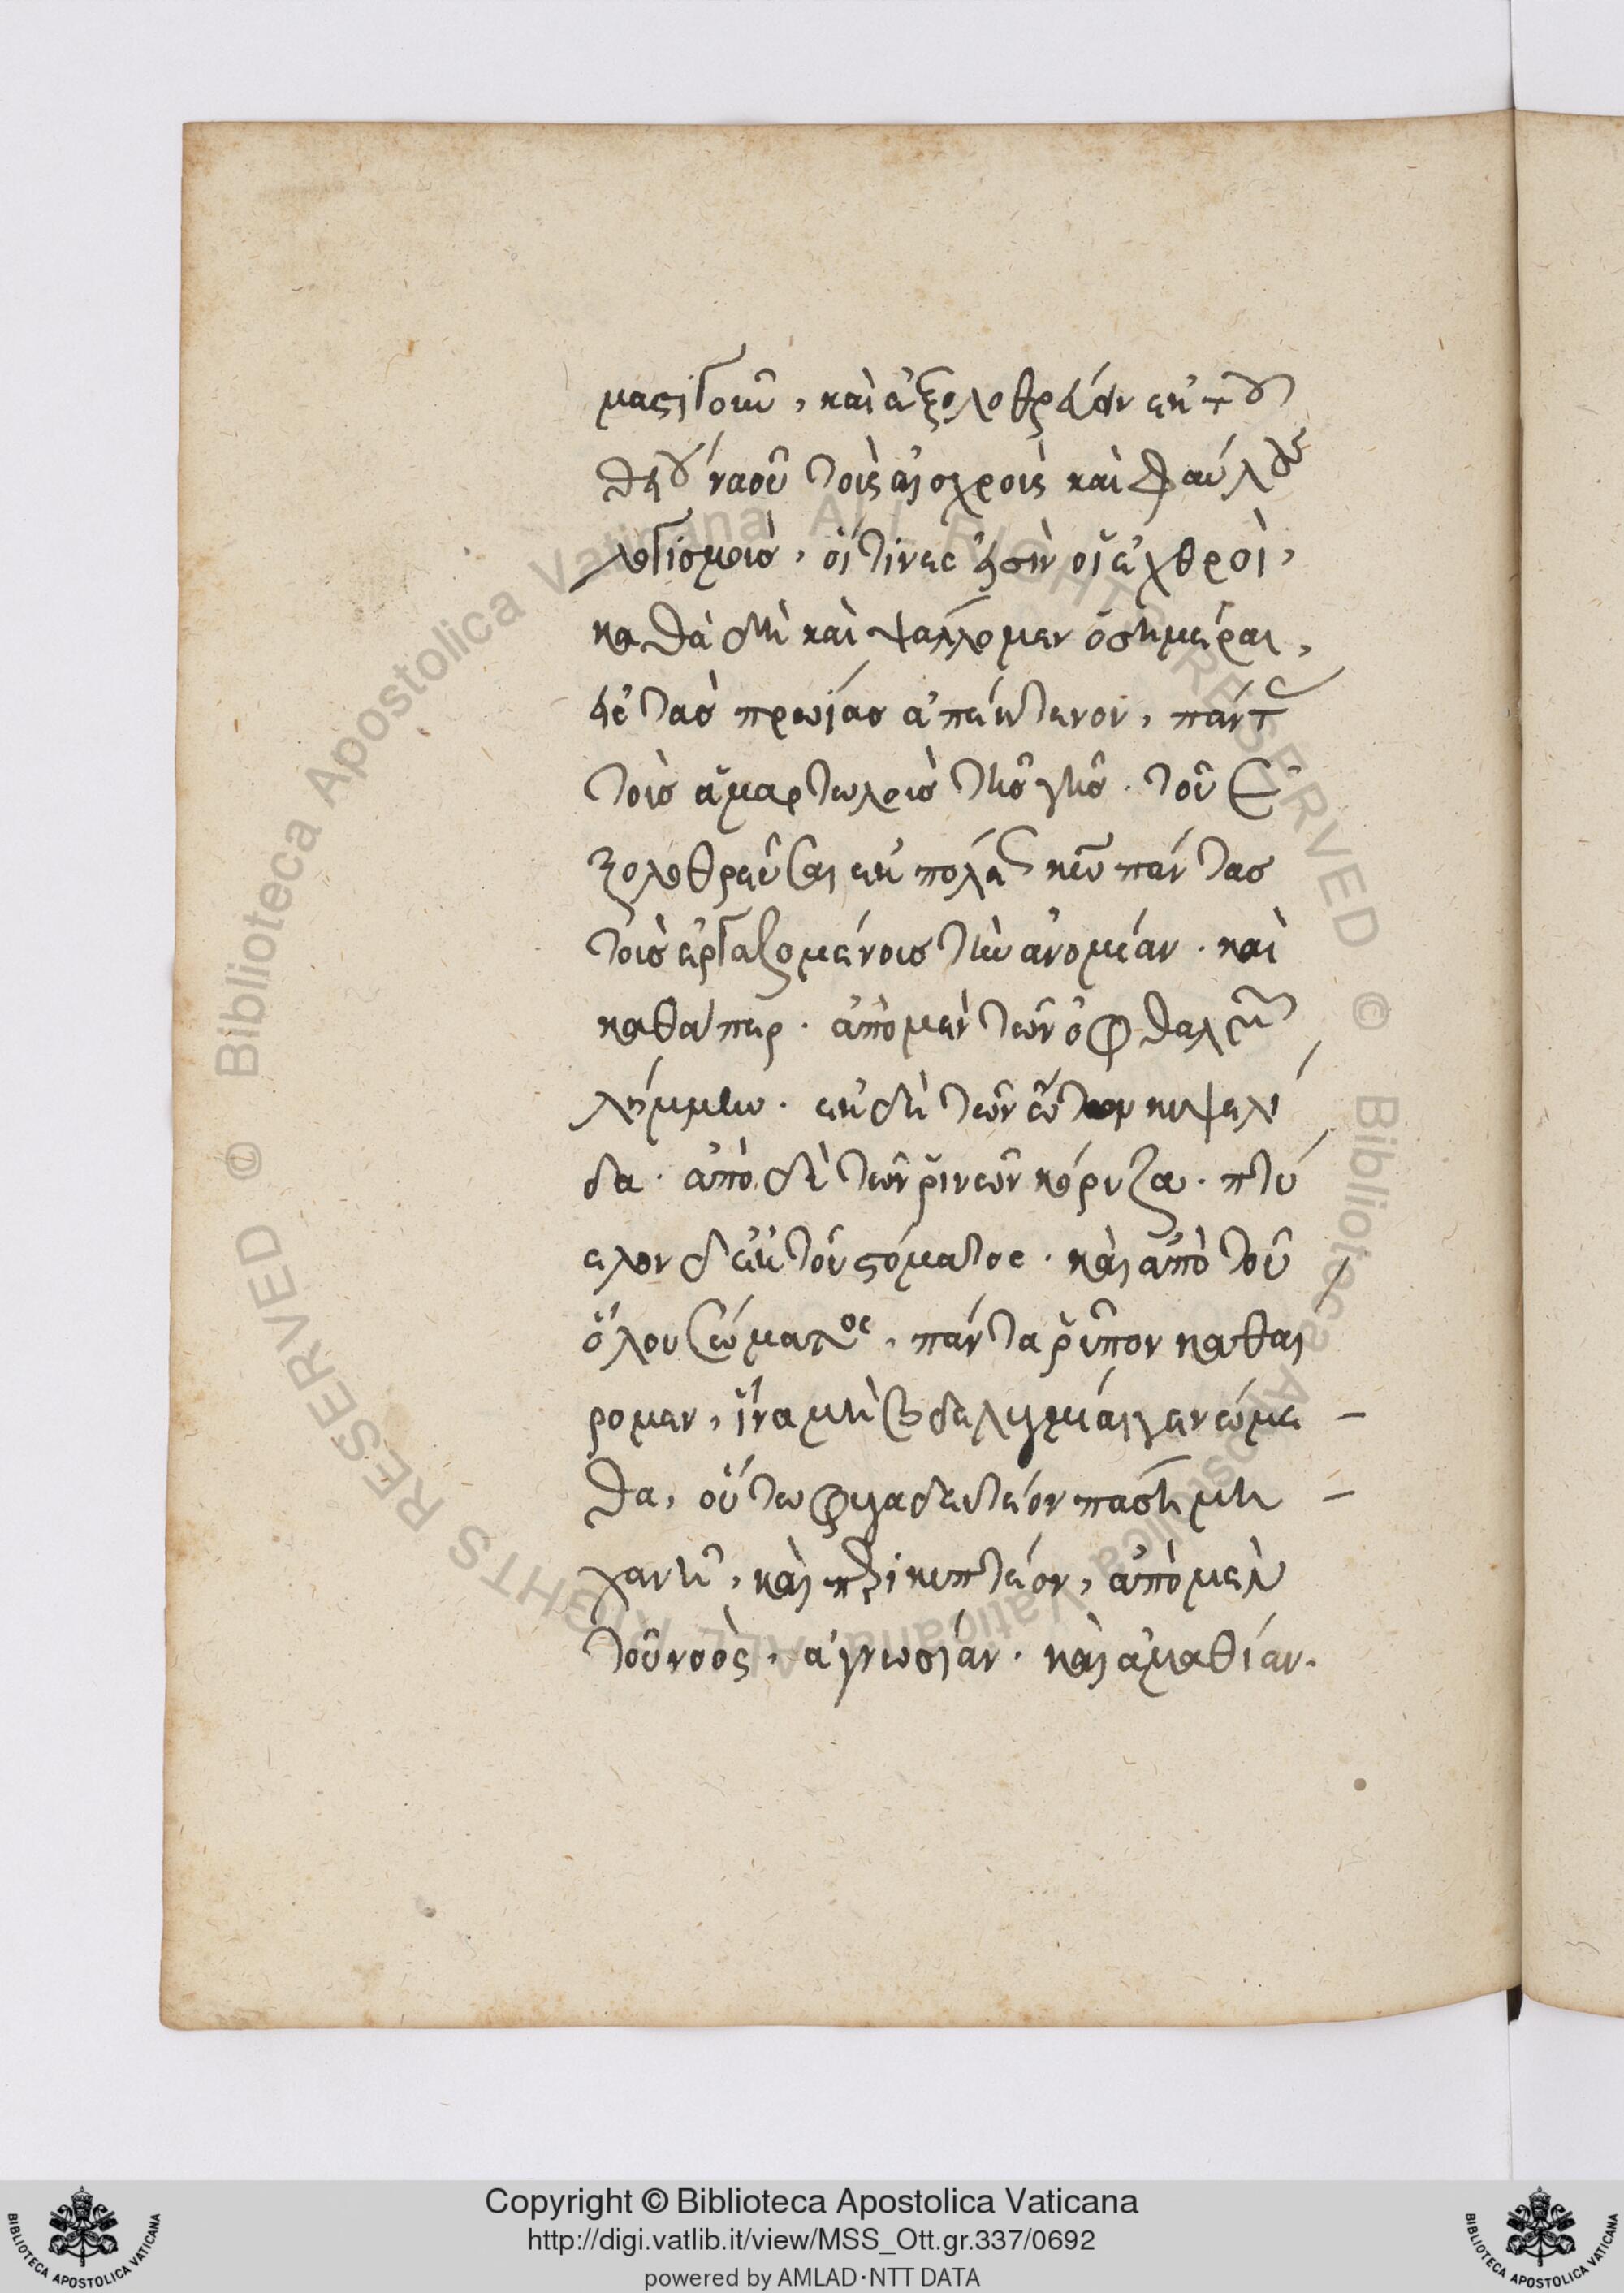 μαστιγοῦν, καὶ ἐξολοθρεύειν ἐκ τοῦ
θείου ναοῦ τοὺς αἰσχροὺς καὶ φαύλους
λογισμοὺς, οἵτινες εἰσὶν οἱ ἐχθροὶ,
καθὰ δὴ καὶ ψάλλομεν ὁσημέραι,
εἰς τὰς πρωΐας ἀπέκτενον, πάντας
τοὺς ἁμαρτωλοὺς τῆς γῆς. τοῦ ἐ
ξολοθρεῦσαι ἐκ πόλεως κυ πάντας
τοὺς ἐργαζομένους τὴν ἀνομίαν. καὶ
καθάπερ. ἀπὸ μὲν τῶν ὀφθαλμῶν
λήμμην. ἐκ δὲ τῶν ὤτων κυψελί
δα. ἀπὸ δὲ τῶν ῥινῶν κόρυζα. πτύ
ελον δ' ἐκ τοῦ στόματος. καὶ ἀπὸ τοῦ
ὅλου σώματος, πάντα ῥύπον καθαι
ρομεν, ἵνα μὴ βδελυγμίαι γενώμε
θα, οὕτω φυγαδευτέον πάσῃ μη
χανῇ, καὶ περικοπτέον, ἀπὸ μὲν
τοῦ νοὸς, ἀγνωσίαν. καὶ ἀμαθίαν.
Copyright © Biblioteca Apostolica Vaticana
http://digi.vatlib.it/view/MSS_Ott.gr.337/0692
powered by AMLAD·NTT DATA
BIBLIOTECA APOSTOLICA VATICANA
BIBLIOTECA APOSTOLICA VATICANA
© Biblioteca Apostolica Vaticana ALL RIGHTS RESERVED
© Biblioteca Apostolica Vaticana ALL RIGHTS RESERVED